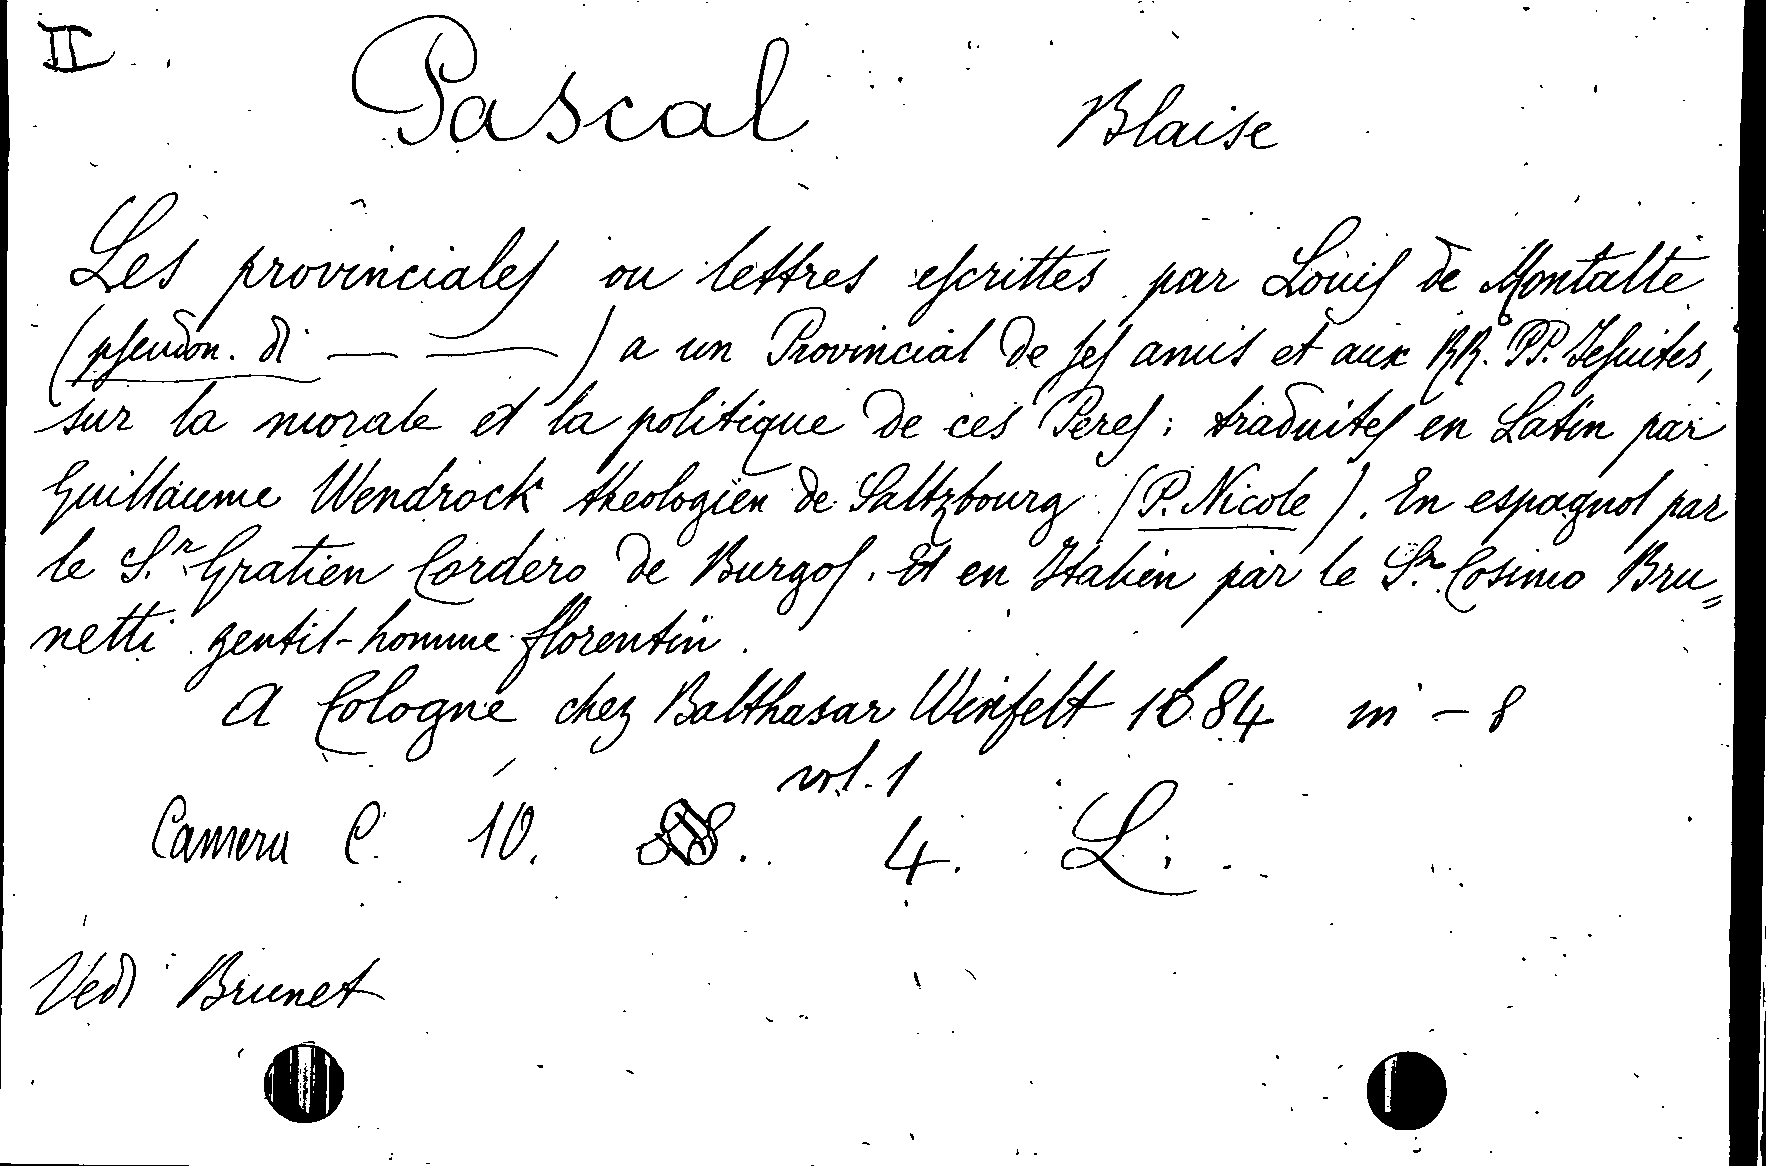 II
Pascal Blaise
Les provincialeſ ou lettres eſcrittes par Louiſ de Montalte
(pſeudon. di — —) a un Provincial de ſeſ amis et aux RR. PP. Jeſuites,
sur la morale et la politique de ces Pereſ; traduiteſ en Latin par
Guillaume Wendrock theologien de Saltzbourg (P. Nicole). En espagnol par
le S.r Gratien Cordero de Burgoſ. Et en Italien par le S.r Cosimo Bru„
netti gentil-homme florentin.
A Cologne chez Balthasar Winfelt 1684 in - 8
vol. 1
Camera C. 10. 4. L.
Vedi Brunet